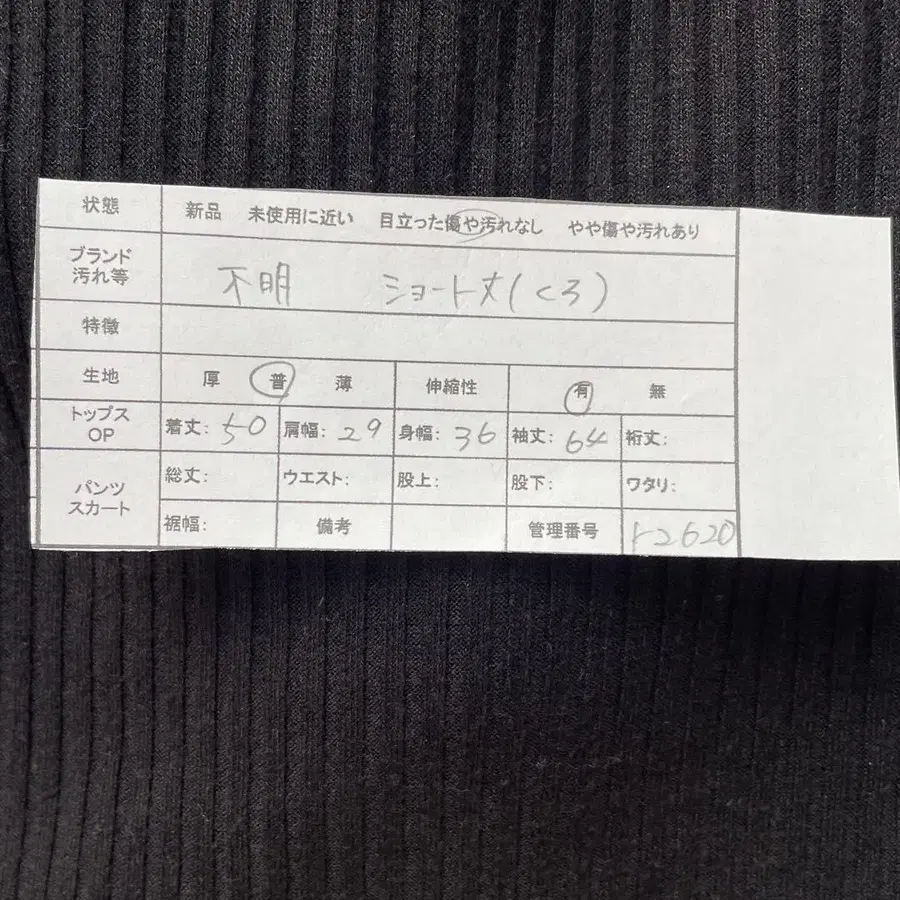 状態 新品 未使用に近い 目立った傷や汚れなし やや傷や汚れあり
ブランド
汚れ等 不明 ショート丈(くろ)
特徴
生地 厚 普 薄 伸縮性 有 無
トップス
OP 着丈: 50 肩幅: 29 身幅: 36 袖丈: 64 裄丈:
パンツ
スカート 総丈: ウエスト: 股上: 股下: ワタリ:
裾幅: 備考 管理番号 r2620